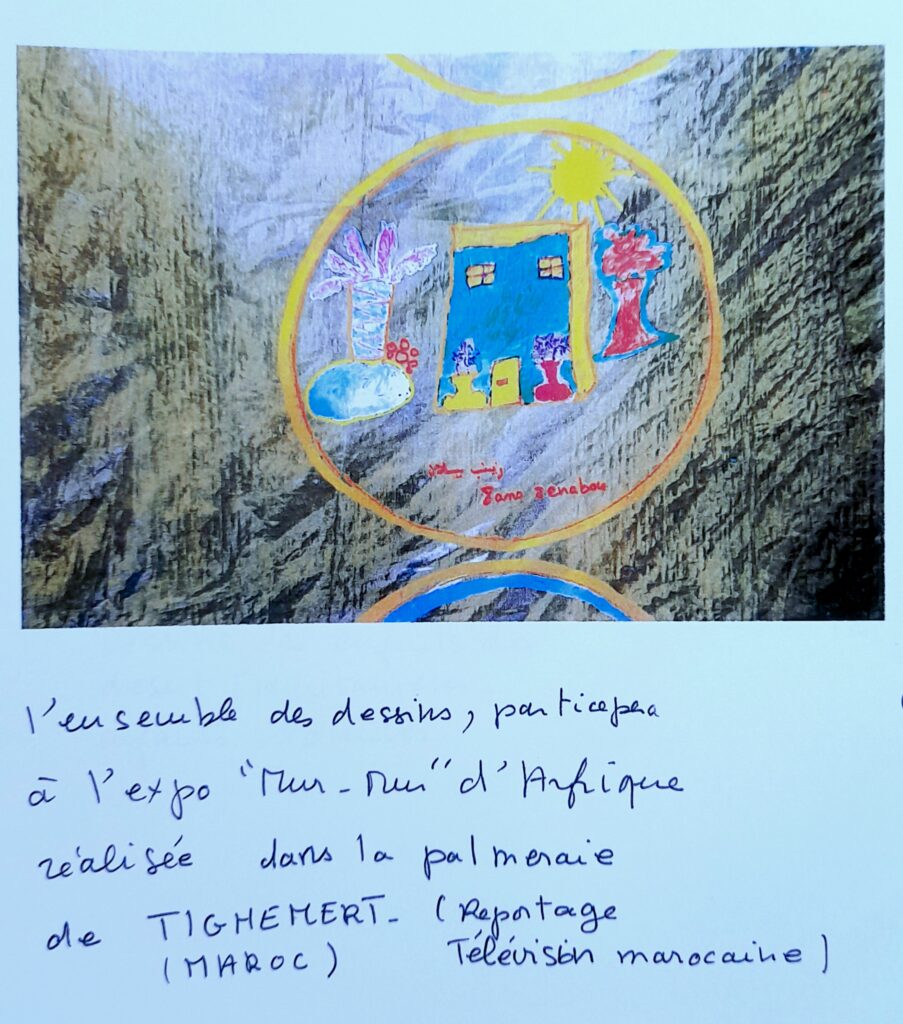 زينب
8ana 8enabou
l'ensemble des dessins, participera
à l'expo "Mur-Mur" d'Afrique
réalisée dans la palmeraie
de TIGHEMERT- (Reportage
(MAROC) Télévision marocaine)